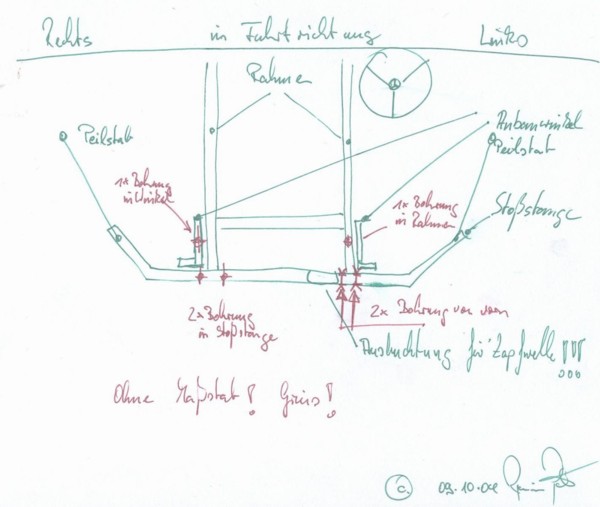 Rechts in Fahrtrichtung Links
Rahmen
Peilstab
Anbauwinkel
Peilstab
1x Bohrung
in Winkel
1x Bohrung
in Rahmen
Stoßstange
2x Bohrung
in Stoßstange
2x Bohrung von vorn
Ausbuchtung für Zapfwelle !!!
Ohne Maßstab! Gruss!